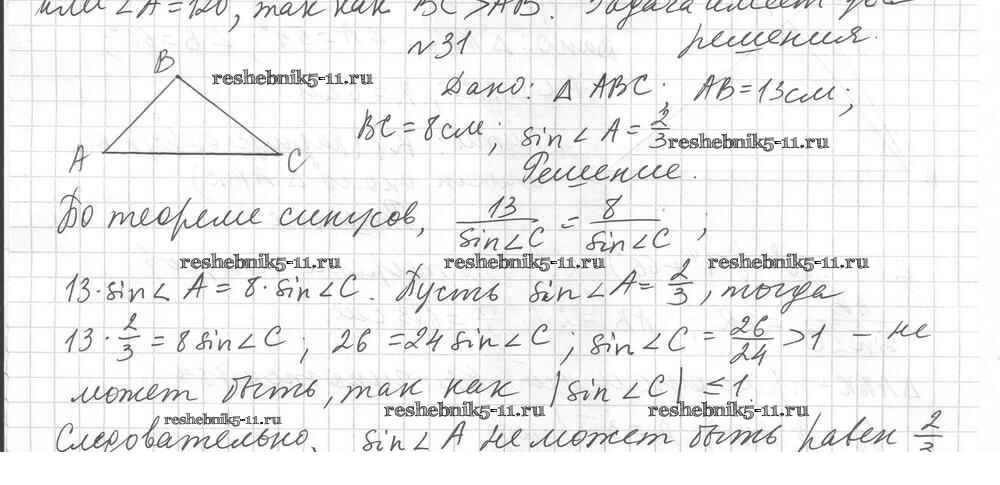 или ∠A = 120, так как BC > AB. Задача имеет два
решения.
№31
B
A
C
reshebnik5-11.ru
Дано: Δ ABC; AB = 13 см;
BC = 8 см; sin∠A = 2/3 reshebnik5-11.ru
Решение.
По теореме синусов, 13/sin∠C = 8/sin∠C ;
reshebnik5-11.ru reshebnik5-11.ru reshebnik5-11.ru
13·sin∠A = 8·sin∠C. Пусть sin∠A = 2/3, тогда
13·2/3 = 8sin∠C ; 26 = 24sin∠C ; sin∠C = 26/24 > 1 – не
может быть, так как |sin∠C| ≤ 1.
reshebnik5-11.ru reshebnik5-11.ru reshebnik5-11.ru
Следовательно, sin∠A не может быть равен 2/3